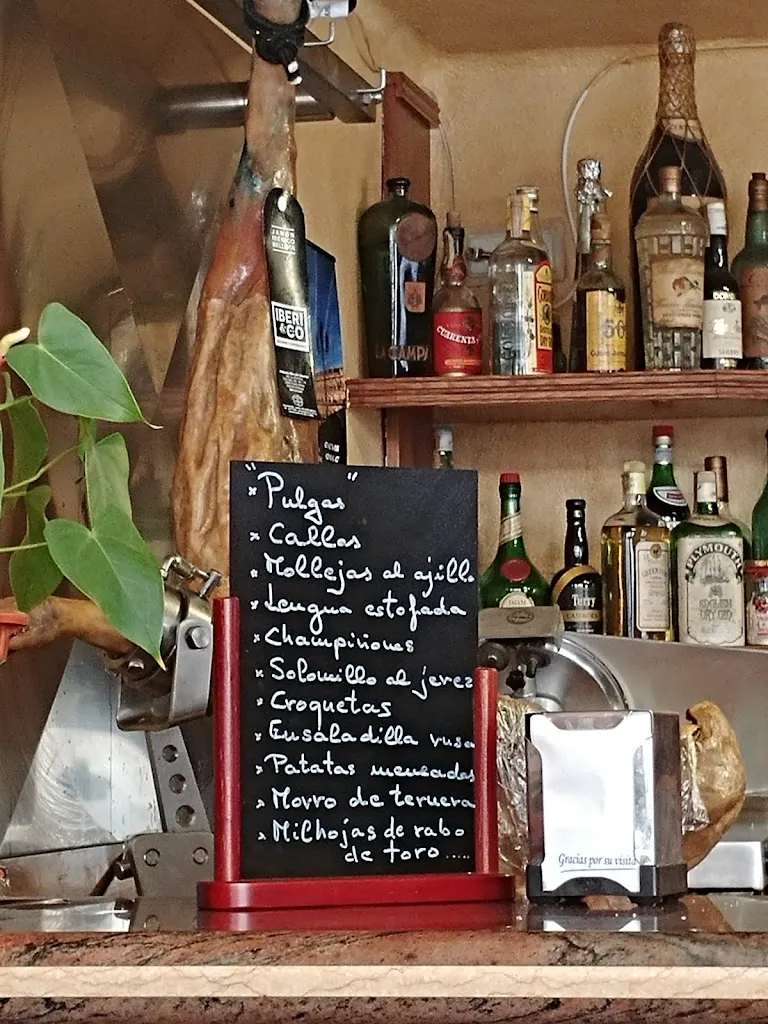 JAMÓN
IBÉRICO
BELLOTA
IBERI
&CO
LA CAMPA
CUARENTA
"Pulgas"
* Callos
* Mollejas al ajillo
* Lengua estofada
* Champiñones
* Solomillo al jerez
* Croquetas
* Ensaladilla rusa
* Patatas meneadas
* Morro de ternera
* Milhojas de rabo
de toro.....
Terry
PLYMOUTH
ENGLISH
DRY GIN
Gracias por su visita